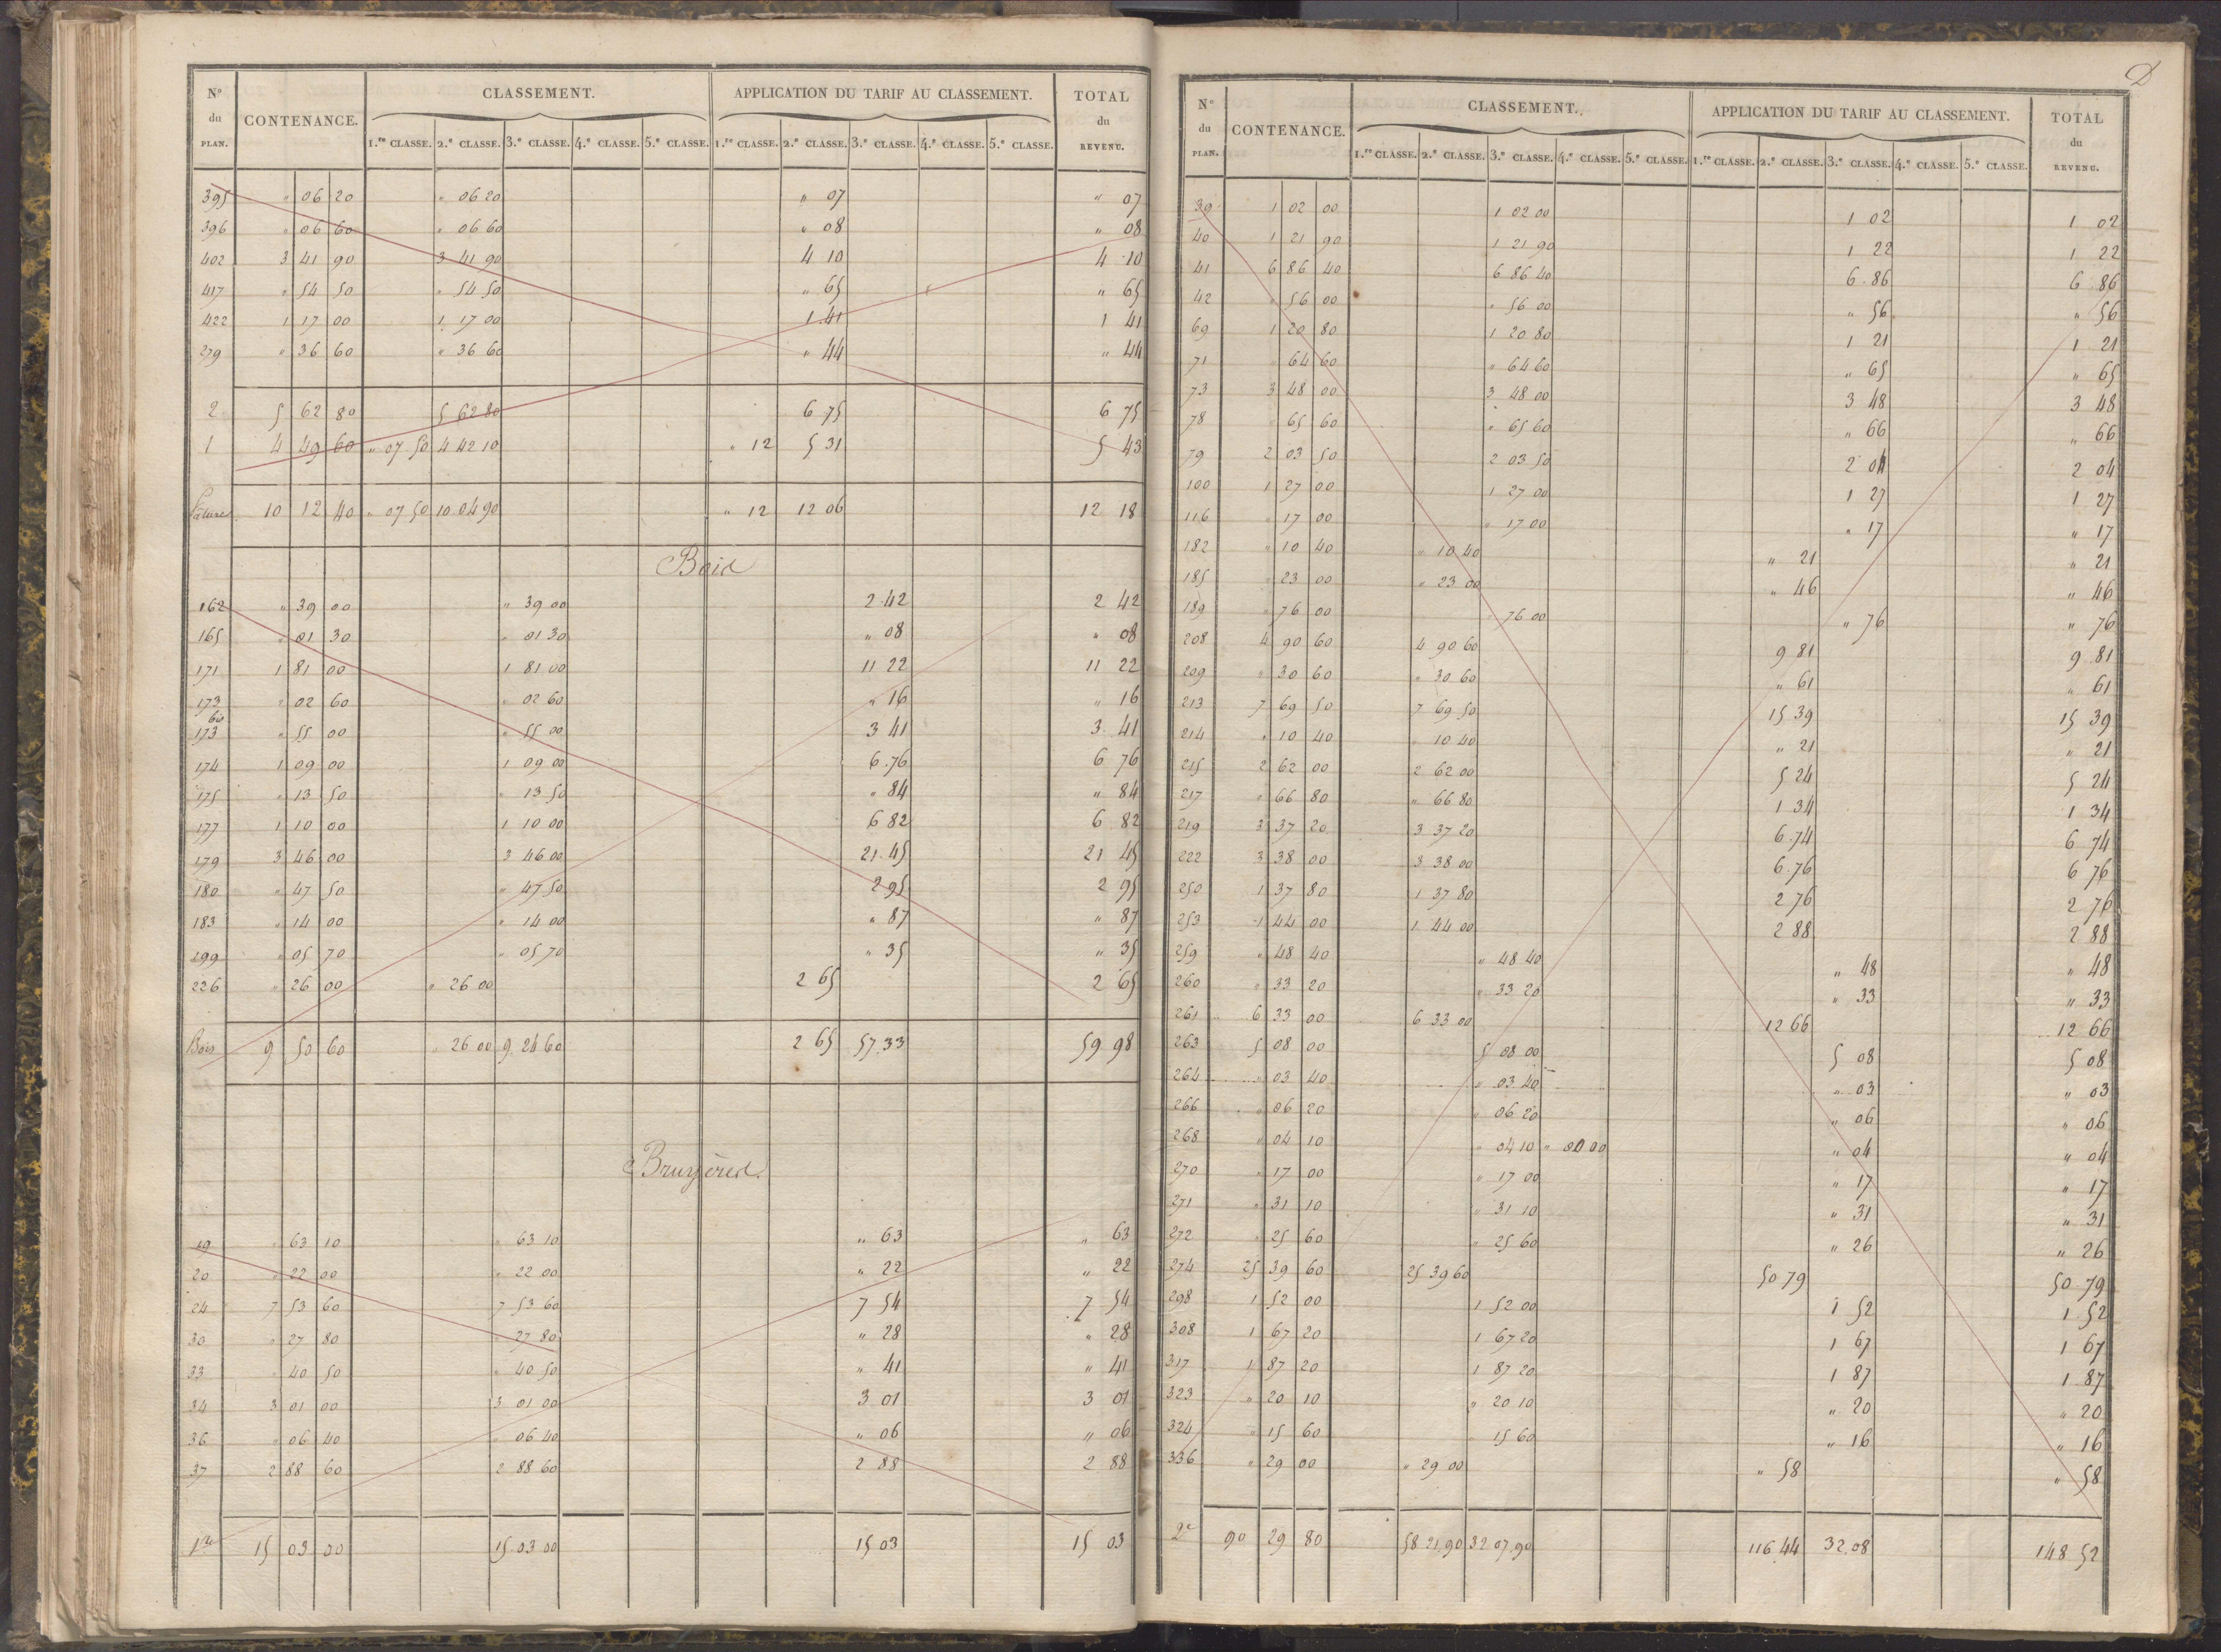 N° du PLAN. CONTENANCE. CLASSEMENT. APPLICATION DU TARIF AU CLASSEMENT. TOTAL du REVENU.
1.re CLASSE. 2.e CLASSE. 3.e CLASSE. 4.e CLASSE. 5.e CLASSE. 1.re CLASSE. 2.e CLASSE. 3.e CLASSE. 4.e CLASSE. 5.e CLASSE.
395 " 06 20 " 06 20 " 07 " 07
396 " 06 60 " 06 60 " 08 " 08
402 3 41 90 3 41 90 4 10 4 10
417 " 54 50 " 54 50 " 65 " 65
422 1 17 00 1 17 00 1 41 1 41
279 " 36 60 " 36 60 " 44 " 44
2 5 62 80 5 62 80 6 75 6 75
1 4 49 60 " 07 50 4 42 10 " 12 5 31 5 43
Pâtures 10 12 40 " 07 50 10 04 90 " 12 12 06 12 18
Bois
162 " 39 00 " 39 00 2 42 2 42
165 " 01 30 " 01 30 " 08 " 08
171 1 81 00 1 81 00 11 22 11 22
173 " 02 60 " 02 60 " 16 " 16
173 bis " 55 00 " 55 00 3 41 3 41
174 1 09 00 1 09 00 6.76 6 76
175 " 13 50 " 13 50 " 84 " 84
177 1 10 00 1 10 00 6 82 6 82
179 3 46 00 3 46 00 21.45 21 45
180 " 47 50 " 47 50 2 95 2 95
183 " 14 00 " 14 00 " 87 " 87
199 " 05 70 " 05 70 " 35 " 35
226 " 26 00 " 26 00 2 65 2 65
Bois 9 50 60 " 26 00 9 24 60 2 65 57.33 59 98
Bruyères.
19 " 63 10 " 63 10 " 63 " 63
20 " 22 00 " 22 00 " 22 " 22
24 7 53 60 7 53 60 7 54 7 54
30 " 27 80 " 27 80 " 28 " 28
33 " 40 50 " 40 50 " 41 " 41
34 3 01 00 3 01 00 3 01 3 01
36 " 06 40 " 06 40 " 06 " 06
37 2 88 60 2 88 60 2 88 2 88
1re 15 03 00 15 03 00 15 03 15 03
N° du PLAN. CONTENANCE. CLASSEMENT. APPLICATION DU TARIF AU CLASSEMENT. TOTAL du REVENU.
1.re CLASSE. 2.e CLASSE. 3.e CLASSE. 4.e CLASSE. 5.e CLASSE. 1.re CLASSE. 2.e CLASSE. 3.e CLASSE. 4.e CLASSE. 5.e CLASSE.
39 1 02 00 1 02 00 1 02 1 02
40 1 21 90 1 21 90 1 22 1 22
41 6 86 40 6 86 40 6.86 6 86
42 " 56 00 " 56 00 " 56 " 56
69 1 20 80 1 20 80 1 21 1 21
71 " 64 60 " 64 60 " 65 " 65
73 3 48 00 3 48 00 3 48 3 48
78 " 65 60 " 65 60 " 66 " 66
79 2 03 50 2 03 50 2 04 2 04
100 1 27 00 1 27 00 1 27 1 27
116 " 17 00 " 17 00 " 17 " 17
182 " 10 40 " 10 40 " 21 " 21
185 " 23 00 " 23 00 " 46 " 46
189 " 76 00 " 76 00 " 76 " 76
208 4 90 60 4 90 60 9 81 9 81
209 " 30 60 " 30 60 " 61 " 61
213 7 69 50 7 69 50 15 39 15 39
214 " 10 40 " 10 40 " 21 " 21
215 2 62 00 2 62 00 5 24 5 24
217 " 66 80 " 66 80 1 34 1 34
219 3 37 20 3 37 20 6.74 6 74
222 3 38 00 3 38 00 6.76 6 76
250 1 37 80 1 37 80 2 76 2 76
253 1 44 00 1 44 00 2 88 2 88
259 " 48 40 " 48 40 " 48 " 48
260 " 33 20 " 33 20 " 33 " 33
261 6 33 00 6 33 00 12 66 12 66
263 5 08 00 5 08 00 5 08 5 08
264 " 03 40 " 03 40 " 03 " 03
266 " 06 20 " 06 20 " 06 " 06
268 " 04 10 " 04 10 " 00 00 " 04 " 04
270 " 17 00 " 17 00 " 17 " 17
271 " 31 10 " 31 10 " 31 " 31
272 " 25 60 " 25 60 " 26 " 26
274 25 39 60 25 39 60 50 79 50 79
298 1 52 00 1 52 00 1 52 1 52
308 1 67 20 1 67 20 1 67 1 67
317 1 87 20 1 87 20 1 87 1 87
323 " 20 10 " 20 10 " 20 " 20
324 " 15 60 " 15 60 " 16 " 16
336 " 29 00 " 29 00 " 58 " 58
2e 90 29 80 58 21.90 32 07.90 116.44 32.08 148 52